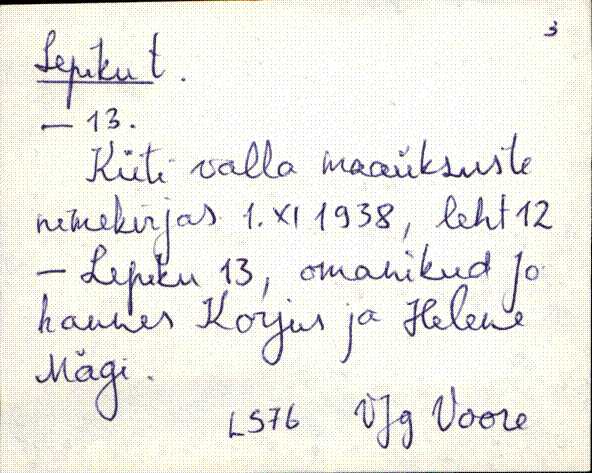 3
Lepiku t.
— 13.
Küti valla maaüksuste
nimekirjas 1. XI 1938, leht 12
— Lepiku 13, omanikud Jo
hannes Korjus ja Helene
Mägi.
LS76 VJg Voore